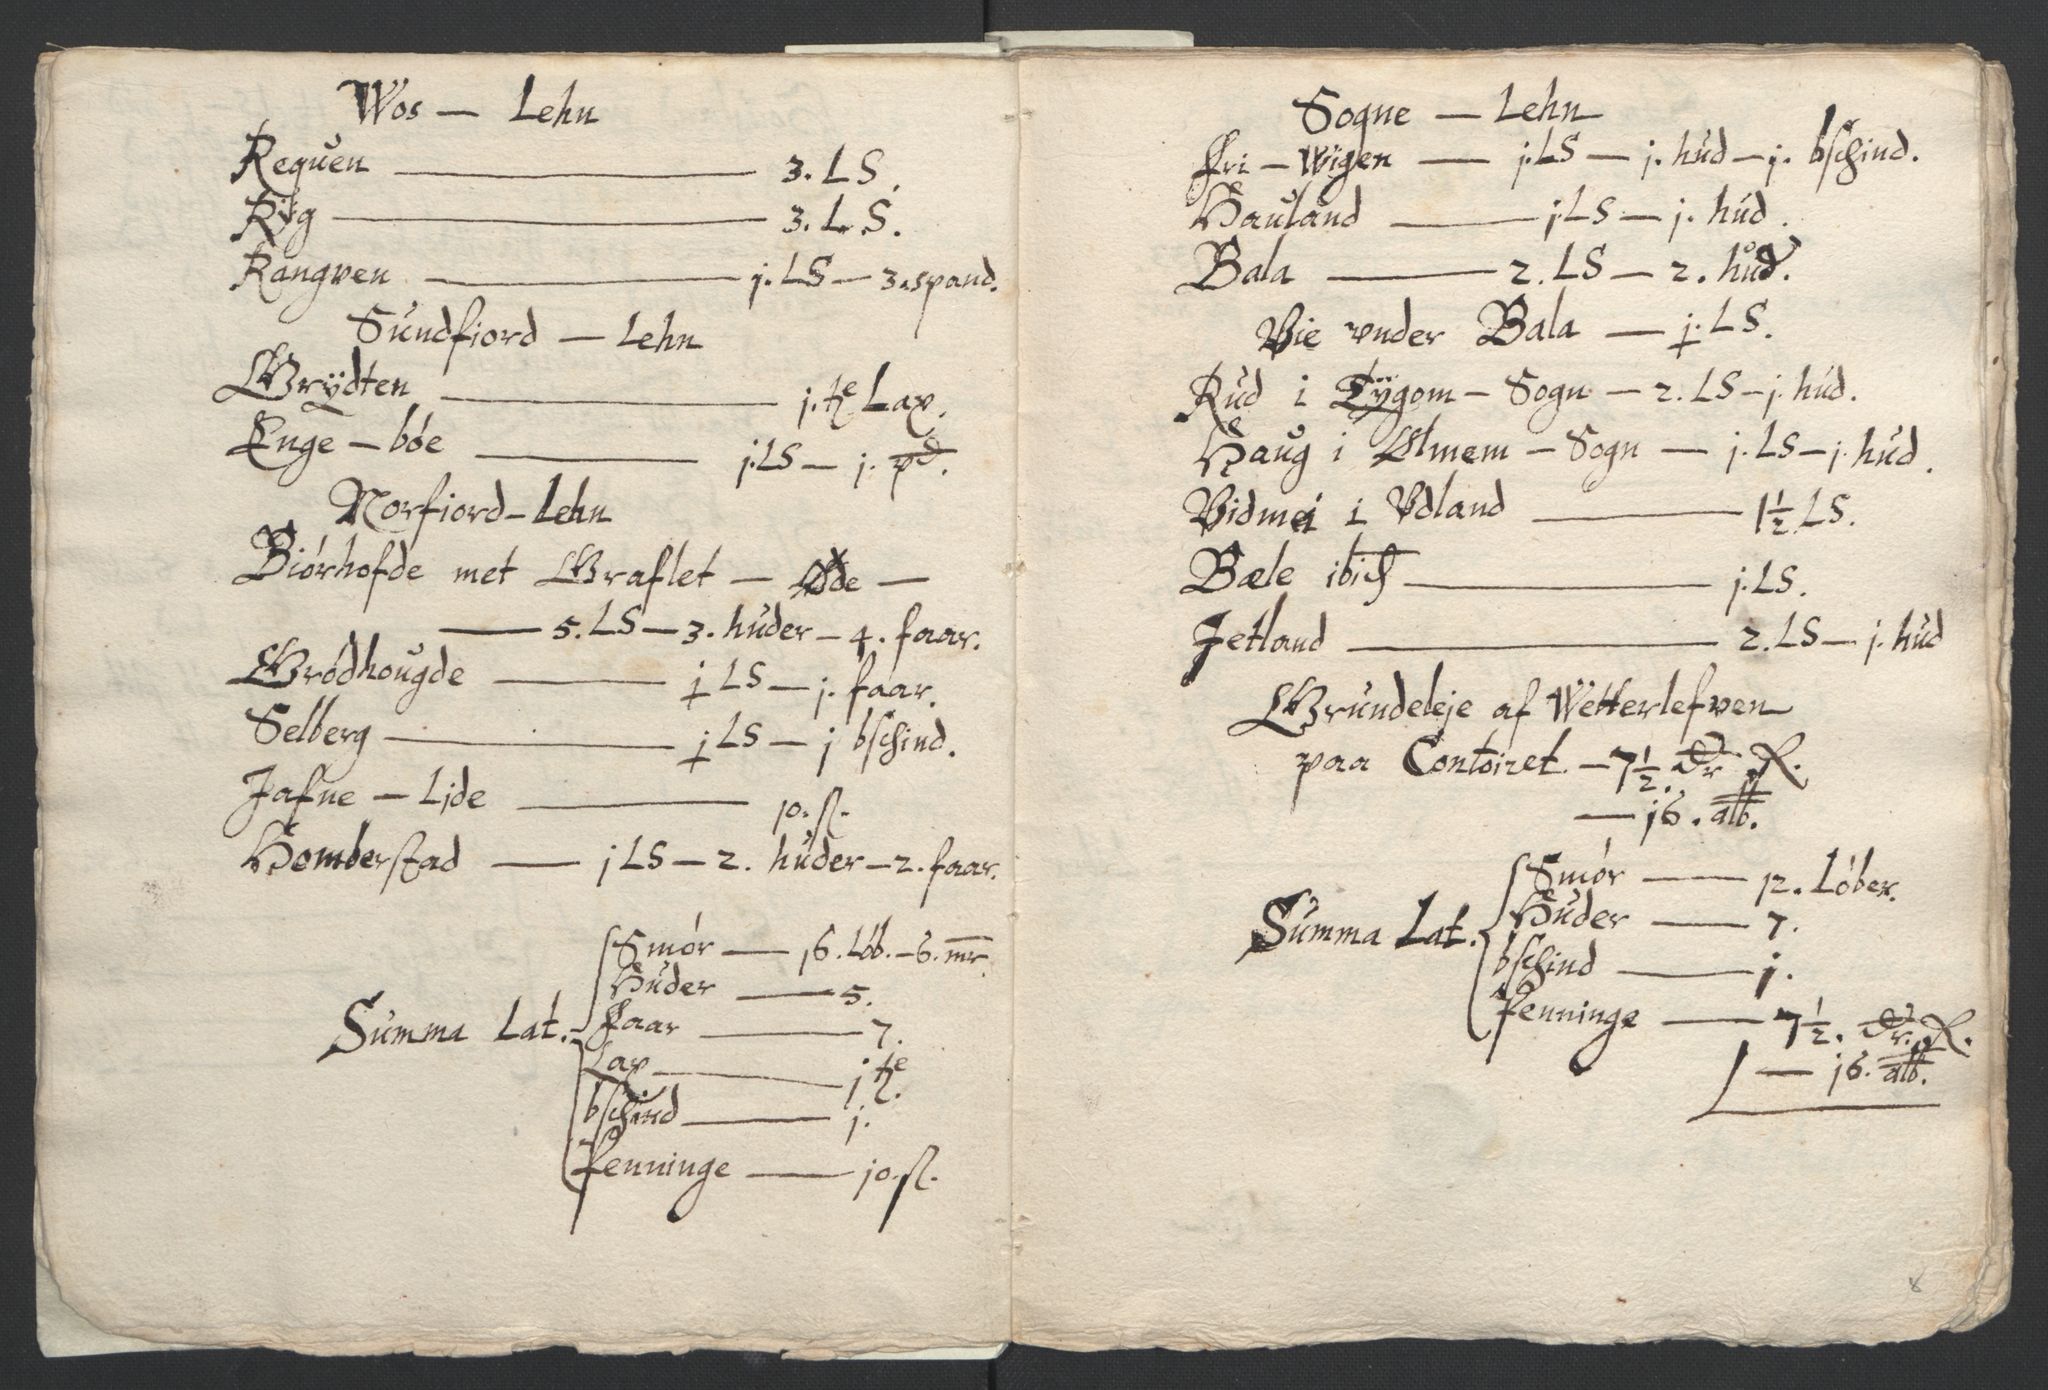 Wos — Lehn
Requen — 3. LS.
Rÿg — 3. LS.
Rangven — j. LS — 3. spand.
Sundfiord — Lehn
Grÿdten — j. tꝛe Lax.
Enge — bóe — j. LS — j. pd.
Norfiord — Lehn
Biórhofde met Graflet — Øde —
— 5. LS — 3. huder — 4. faar.
Gródhougde — j LS — j. faar.
Selberg — j LS — j bschind.
Jafne — Lide — 10. ß.
Homberstad — j LS — 2. huder — 2. faar.
Summa Lat.
Smór — 16. Lób. — 6. mr.
Huder — 5.
Faar — 7.
Lax — j tꝛe.
bschind — j.
Penninge — 10. ß.
Sogne — Lehn
Fri — Wigen — j. LS — j. hud — j. bschind.
Hauland — j. LS — j. hud.
Bala — 2. LS — 2. hud.
Vie vnder Bala — j. LS.
Rud i Tÿgom — Sogn — 2. LS — j. hud.
Haug i Olmem — Sogn — j. LS — j. hud.
Vidmei i Vdland — 1½ LS.
Bæle ibid — j. LS.
Jetland — 2. LS — j. hud
Grundeleje af Wetterlefven
paa Contoiret — 7½. Dr R.
— 16. alb.
Summa Lat.
Smór — 12. Lóber.
Huder — 7.
bschind — j.
Penninge — 7½. Dr. R.
— 16. alb.
8